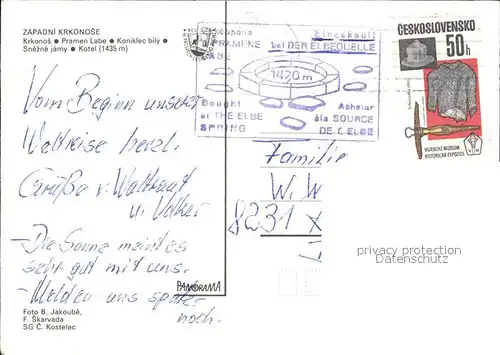 ZÁPADNÍ KRKONOŠE
Krkonoš ● Pramen Labe ● Koniklec bílý ●
Sněžné jámy ● Kotel (1435 m)
PRAMENE
Eingekauft
bei DER ELBEQUELLE
1420 m
Bought
at THE ELBE
SPRING
Acheter
à la SOURCE
DE L'ELBE
ČESKOSLOVENSKO
50h
VOJENSKÉ MUZEUM
HISTORICKÁ EXPOZICE
Vom Beginn unserer
Weltreise herzl.
Grüße v. Waltraut
u. Volker
Die Sonne meint es
sehr gut mit uns.
Melden uns später
noch.
Familie
W. W
8231
privacy protection
Datenschutz
PANORAMA
Foto B. Jakoubě,
F. Škarvada
SG Č. Kostelec